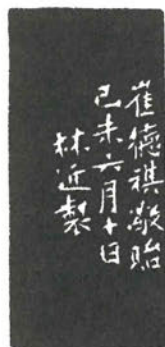 崔德祺敬貽
己未六月十日
林近製